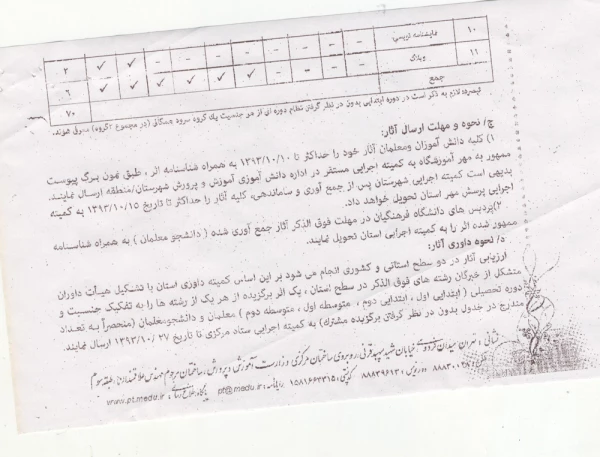 ۱۰ نمایشنامه نویسی - - - - - - - ✓ ✓ ۲
۱۱ وبلاگ - - - - ✓ ✓ ✓ ✓ ✓ ✓ ۶
جمع ۷۰
تبصره: لازم به ذکر است در دوره ابتدایی بدون در نظر گرفتن نظام دوره ای از هر جنسیت یک گروه سرود همگانی (در مجموع ۲گروه) معرفی شوند.
ج/ نحوه و مهلت ارسال آثار:
۱) کلیه دانش آموزان ومعلمان آثار خود را حداکثر تا ۱۳۹۳/۱۰/۱۰ به همراه شناسنامه اثر ، طبق نمون برگ پیوست
ممهور به مهر آموزشگاه به کمیته اجرایی مستقر در اداره دانش آموزی آموزش و پرورش شهرستان/منطقه ارسال نمایند.
بدیهی است کمیته اجرایی شهرستان پس از جمع آوری و ساماندهی، کلیه آثار را حداکثر تا تاریخ ۱۳۹۳/۱۰/۱۵ به کمیته
اجرایی پرسش مهر استان تحویل خواهد داد.
۲)پردیس های دانشگاه فرهنگیان در مهلت فوق الذکر آثار جمع آوری شده ( دانشجو معلمان ) به همراه شناسنامه
ممهور شده اثر را به کمیته اجرایی استان تحویل نمایند.
د/ نحوه داوری آثار:
ارزیابی آثار در دو سطح استانی و کشوری انجام می شود بر این اساس کمیته داوری استان با تشکیل هیأت داوران
متشکل از خبرگان رشته های فوق الذکر در سطح استان ، یک اثر برگزیده از هر یک از رشته ها را به تفکیک جنسیت و
دوره تحصیلی ( ابتدایی اول ، ابتدایی دوم ، متوسطه اول ، متوسطه دوم ) معلمان و دانشجومعلمان (منحصراً به تعداد
مندرج در جدول بدون در نظر گرفتن برگزیده مشترک) به کمیته اجرایی ستاد مرکزی تا تاریخ ۱۳۹۳/۱۰/۲۷ ارسال نمایند.
نشانی : تهران میدان فردوسی خیابان شهید سپهبد قرنی روبروی ساختمان مرکزی وزارت آموزش و پرورش ، ساختمان مرحوم مهندس علاقمندان ، طبقه سوم
دورنویس : ۸۸۸۳۹۶۱۳ کدپستی : ۱۵۸۱۶۶۳۳۱۵ رایانامه : pt@medu.ir پایگاه اطلاع رسانی : www.pt.medu.ir